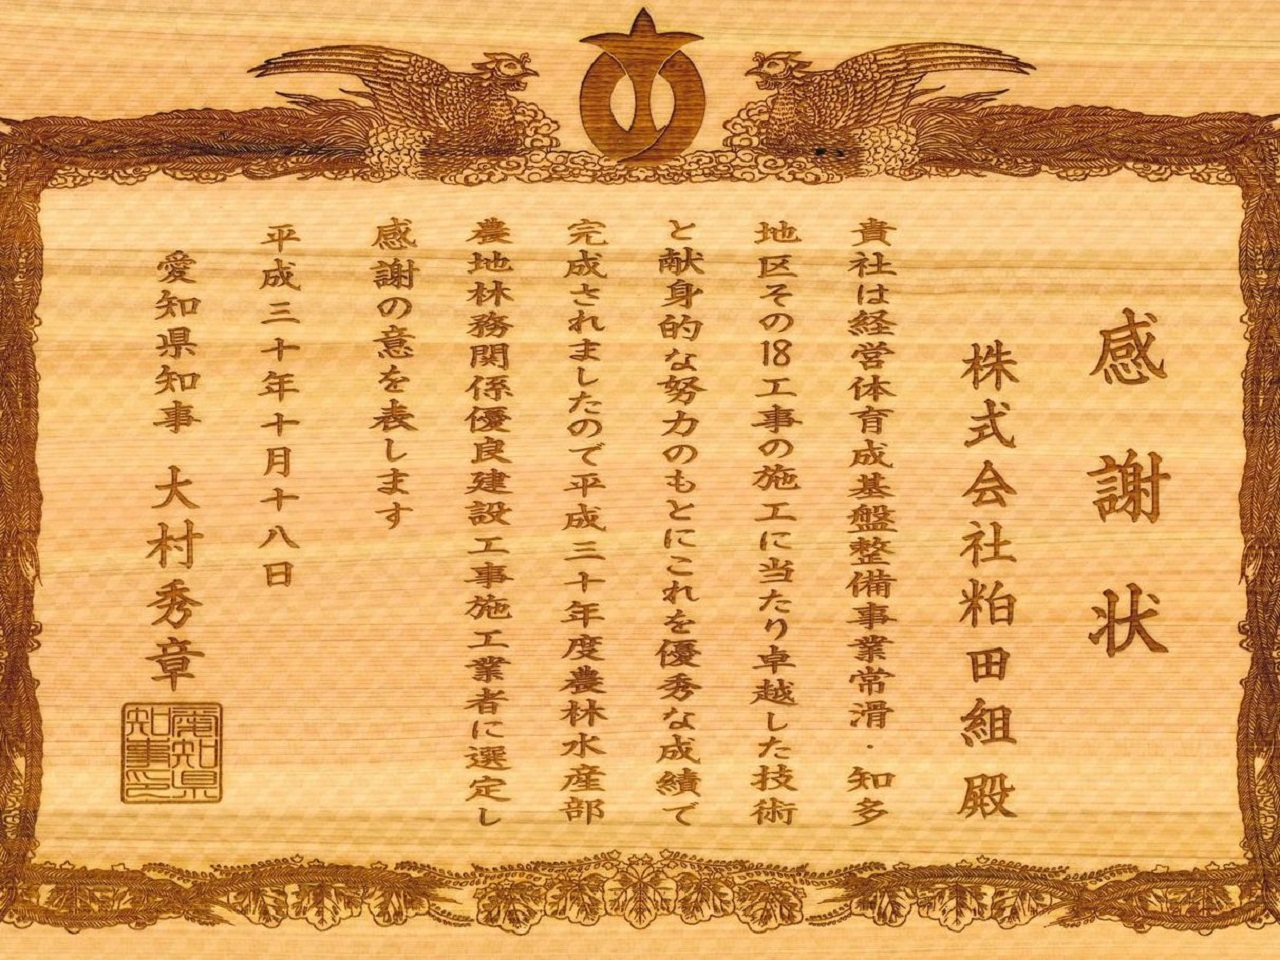 感謝状
株式会社粕田組殿
貴社は経営体育成基盤整備事業常滑・知多
地区その18工事の施工に当たり卓越した技術
と献身的な努力のもとにこれを優秀な成績で
完成されましたので平成三十年度農林水産部
農地林務関係優良建設工事施工業者に選定し
感謝の意を表します
平成三十年十月十八日
愛知県知事 大村秀章
愛知県
知事之印